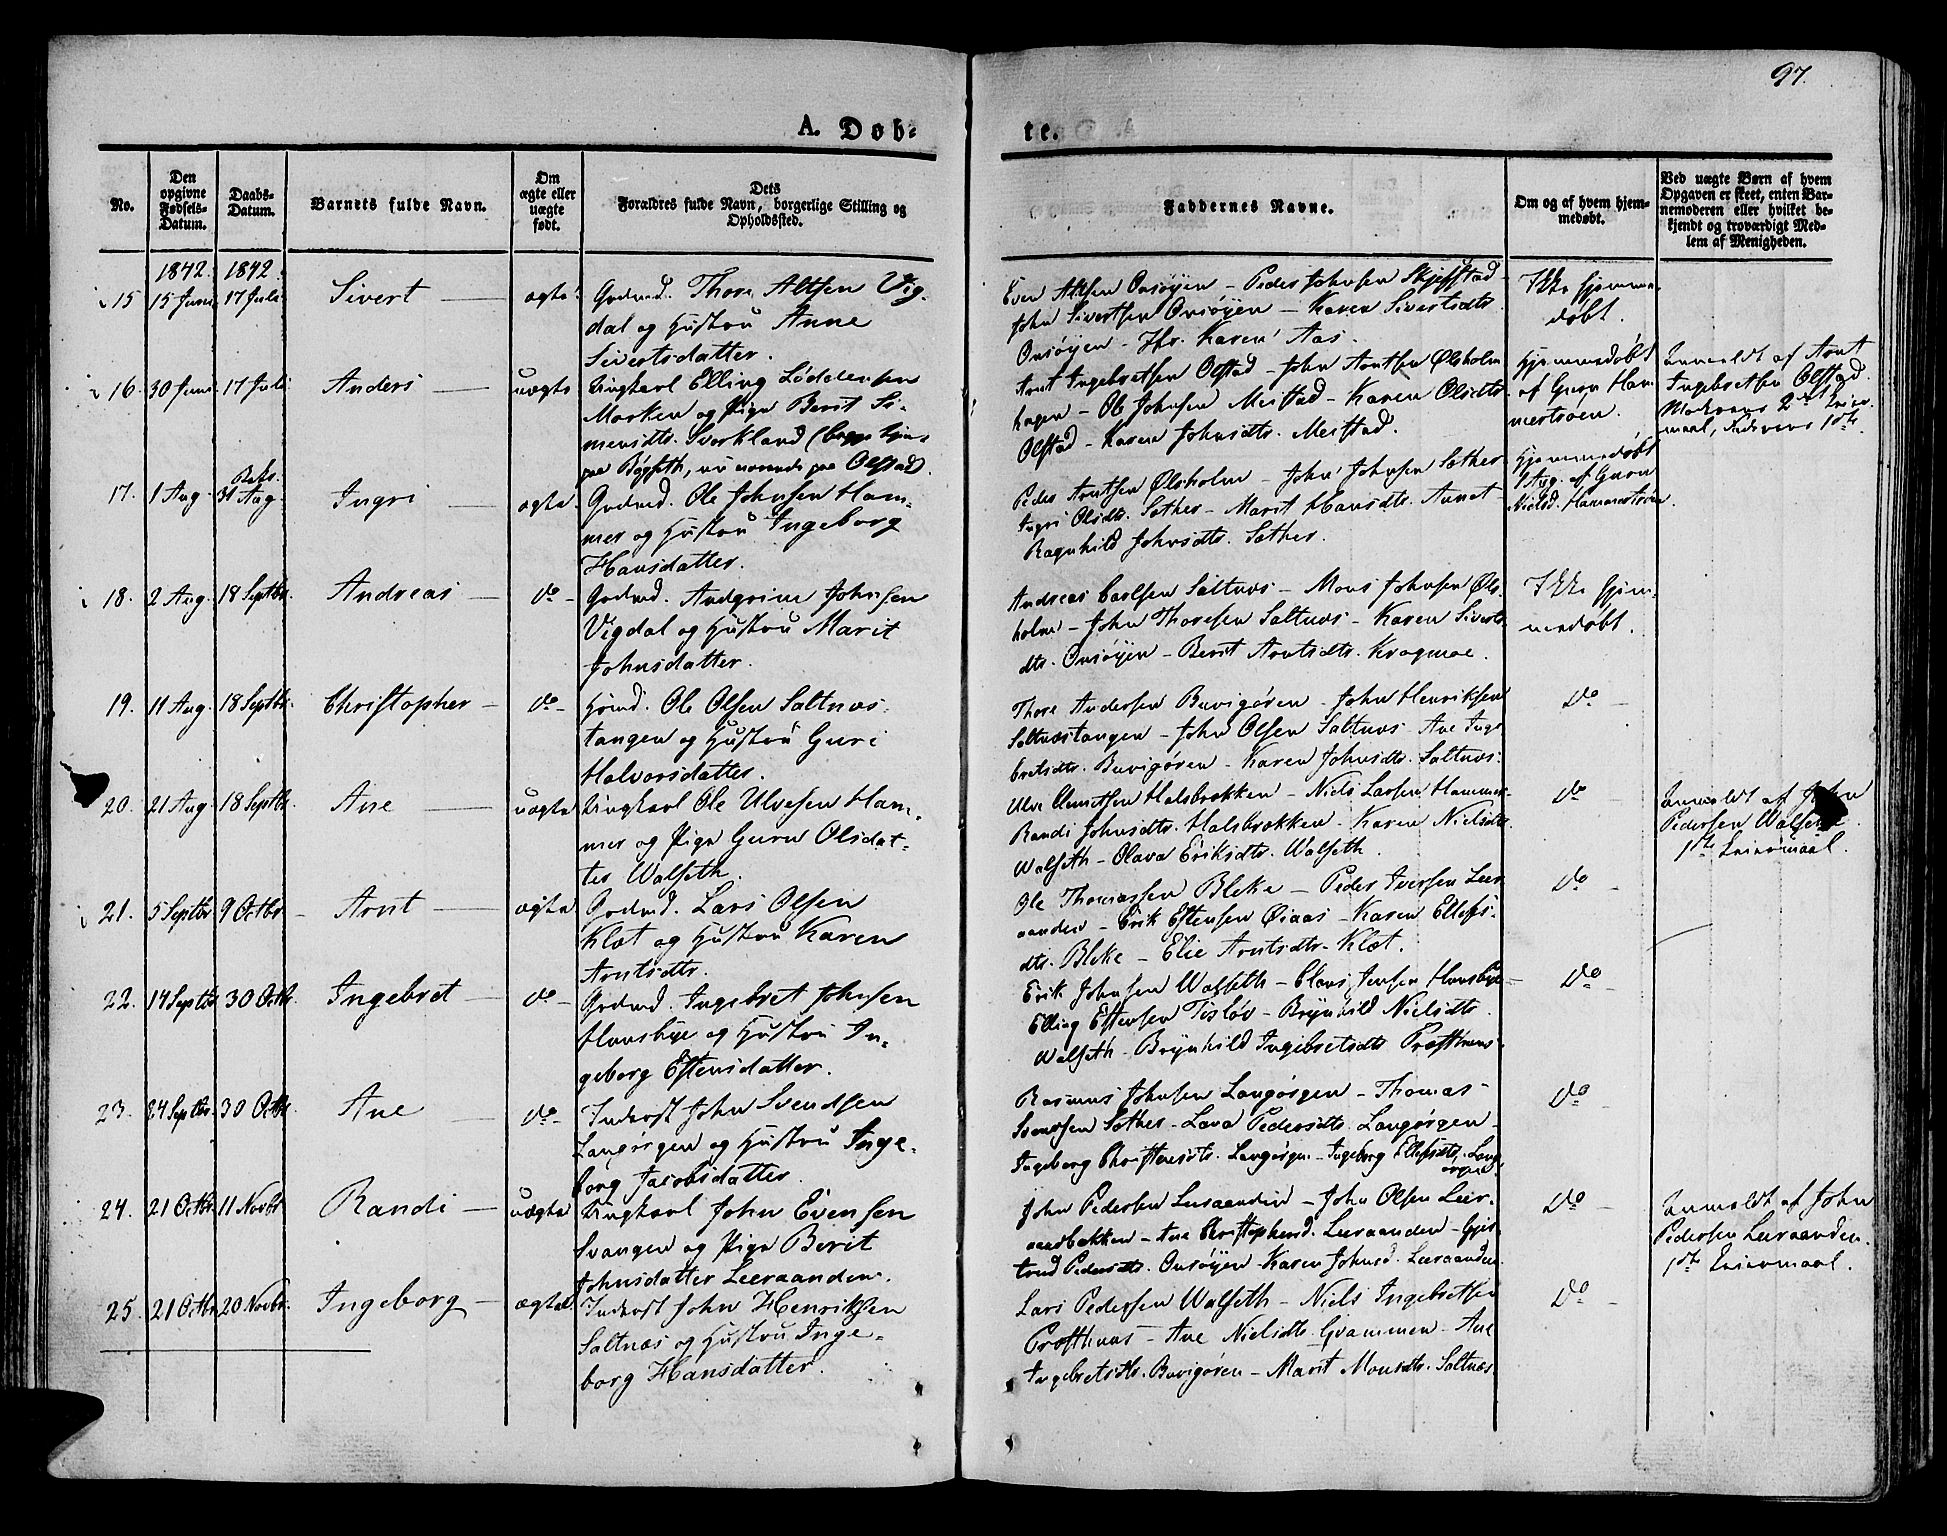 97.
A. Døb-
te.
No.
Den opgivne Fødsels-Datum.
Daabs-Datum.
Barnets fulde Navn.
Om ægte eller uægte født.
Dets Forældres fulde Navn, borgerlige Stilling og Opholdssted.
Faddernes Navne.
Om og af hvem hjem-
medøbt.
Ved uægte Børn af hvem
Opgaven er skeet, enten Bar-
nemoderen eller hvilket be-
kjendt og troværdigt Med-
lem af Menigheden.
1842. 1842.
15 15 Juni 17 Juli Sivert ægte Gvdmd. Thore Altsen Vig-
dal og Hustru Anne
Sivertsdatter.
Even Altsen Onsøyen - Peder Johnsen Skjefstad
John Sivertsen Onsøyen - Karen Sivertsdtr.
Onsøyen - Karen Aas.
Ikke hjemme-
døbt.
16. 30 Juni 17 Juli Anders uægte Ungkarl Elling Løddensen
Morken og Pige Berit Si-
mensdtr. Svorkland (begge
paa Bøgseth, nu paa Olstad.
Arnt Ingebretsen Olstad - John Arntsen Ølsholm
hagen - Ole Johnsen Mestad - Karen Olsdtr.
Olstad - Karen Johnsdtr. Mestad.
Hjemmedøbt
af Guru Ham-
mersrøen.
Anmeldt af Arnt
Ingebretsen Olstad.
Moderens 2det Leier-
maal, Faderens 1ste.
17. 1 Aug. 31 Aug. Ingri ægte. Gvdmd. Ole Johnsen Ham-
mer og Hustru Ingeborg
Hansdatter.
Peder Arntsen Ølsholm - John Johnsen Sæther
Ingri Olsdtr. Sæther - Marit Hansdtr.
Ragnhild Johnsdtr. Sæther.
Hjemmedøbt
Aug. af Guru
Nielsd. Hammersrøen.
18. 2 Aug. 18 Septbr. Andreas do - Gvdmd. Andgrim Johnsen
Vigdal og Hustru Marit
Johnsdatter.
Andreas Carlsen Saltnæs - Mons Johnsen Øls-
holm - John Thoresen Saltnæs - Karen Siverts-
dtr. Onsøyen - Berit Arntsdtr. Krogmoe.
Ikke hjem-
medøbt.
19. 11 Aug. 18 Septbr. Christopher - do - Huusmd. Ole Olsen Saltnæs-
tangen og Hustru Guri
Halvorsdatter.
Thore Andersen Buvigøren - John Henriksen
Saltnæstangen - John Olsen Saltnæs - Ane Inge-
bretsdtr. Buvigøren - Karen Johnsdtr. Saltnæs.
do -
20. 21 Aug. 18 Septbr. Ane uægte Ungkarl Ole Ulvesen Ham-
mer og Pige Guru Olsdat-
ter Walseth.
Ulve Halsbrækken - Niels Larsen Hammer
Randi Johnsdtr. Halsbrækken - Karen Nielsdtr.
Walseth - Olava Eriksdtr. Walseth.
do
Anmeldt af John
Pedersen Walseth.
1ste Leiermaal.
21. 5 Septbr. 9 Octbr. - Arnt ægte Gvdmd. Lars Olsen
Klæt og Hustru Karen
Arntsdtr.
Ole Thomassen Bleke - Peder Iversen Leer-
aanden - Erik Estensen Øiaas - Karen Ellefs-
dtr. Bleke - Elie Arntsdtr. Klæt.
do -
22. 14 Septbr. 30 Octbr. Ingebret do - Gvdmd. Ingebret Johnsen
Huusbye og Hustru In-
geborg Estensdatter.
Erik Johnsen Walseth - Claus Jensen Huusbye -
Elling Estensen Tisløv - Brynhild Nielsdtr.
Walseth - Brynhild Ingebretsdtr. Præsthuus -
do -
23. 24 Septbr. 30 Octbr. Ane do - Inderst John Svendsen
Langørgen og Hustru Inge-
borg Jacobsdatter.
Rasmus Johnsen Langørgen - Thomas
Svendsen Sæther - Lava Pedersdtr. Langørgen -
Ingeborg Christensdtr. Langørgen - Ingeborg Ellefsdtr. Lang-
ørgen
do -
24. 21 Octbr. 11 Novbr. Randi uægte Ungkarl John Evensen
Svangen og Pige Berit
Johnsdatter Leeraanden.
John Pedersen Leeraanden - John Olsen Leer-
aandbækken - Ane Christophersd. Leeraanden - Gjer-
trud Pedersdtr. Onsøyen - Karen Johnsd. Leeraanden
do -
Anmeldt af John
Pedersen Leeraanden.
1ste Leiermaal.
25. 21 Octbr. 20 Novbr. Ingeborg - ægte Inderst John Henriksen
Saltnæs og Hustru Inge-
borg Hansdatter.
Lars Pedersen Walseth - Niels Ingebretsen
Præsthuus - Ane Nielsdtr. Grammen - Ane
Ingebretsdtr. Buvigøren - Marit Monsdtr. Saltnæs
do -